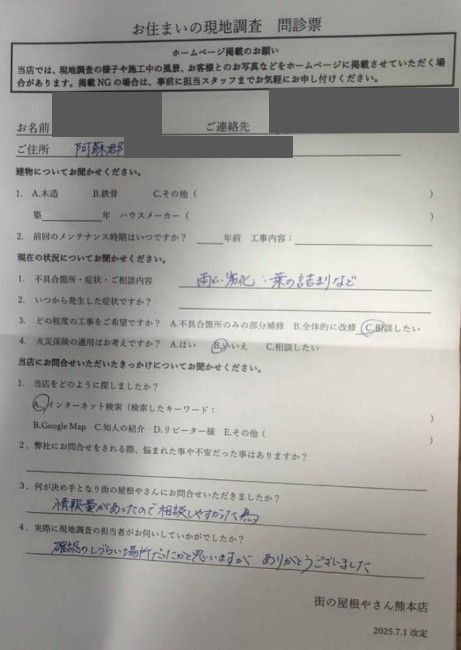 お住まいの現地調査 問診票
ホームページ掲載のお願い
当店では、現地調査の様子や施工中の風景、お客様とのお写真などをホームページに掲載させていただく場
合があります。掲載NGの場合は、事前に担当スタッフまでお気軽にお申し付けください。
お名前 ご連絡先
ご住所 阿蘇郡
建物についてお聞かせください。
1. A.木造 B.鉄骨 C.その他（ ）
築 年 ハウスメーカー（ ）
2. 前回のメンテナンス時期はいつですか？ 年前 工事内容：
現在の状況についてお聞かせください。
1. 不具合箇所・症状・ご相談内容 雨とい劣化・葉の詰まりなど
2. いつから発生した症状ですか？
3. どの程度の工事をご希望ですか？ A.不具合箇所のみの部分補修 B.全体的に改修 C.相談したい
4. 火災保険の適用はお考えですか？ A.はい B.いいえ C.相談したい
当店にお問合せいただいたきっかけについてお聞かせください。
1. 当店をどのように探しましたか？
A.インターネット検索（検索したキーワード： ）
B.Google Map C.知人の紹介 D.リピーター様 E.その他（ ）
2. 弊社にお問合せをされる際、悩まれた事や不安だった事はありますか？
3. 何が決め手となり街の屋根やさんにお問合せいただきましたか？
情報量があったので相談しやすかった為
4. 実際に現地調査の担当者がお伺いしていかがでしたか？
確認のしづらい場所だったかと思いますが ありがとうございました
街の屋根やさん熊本店
2025.7.1 改定